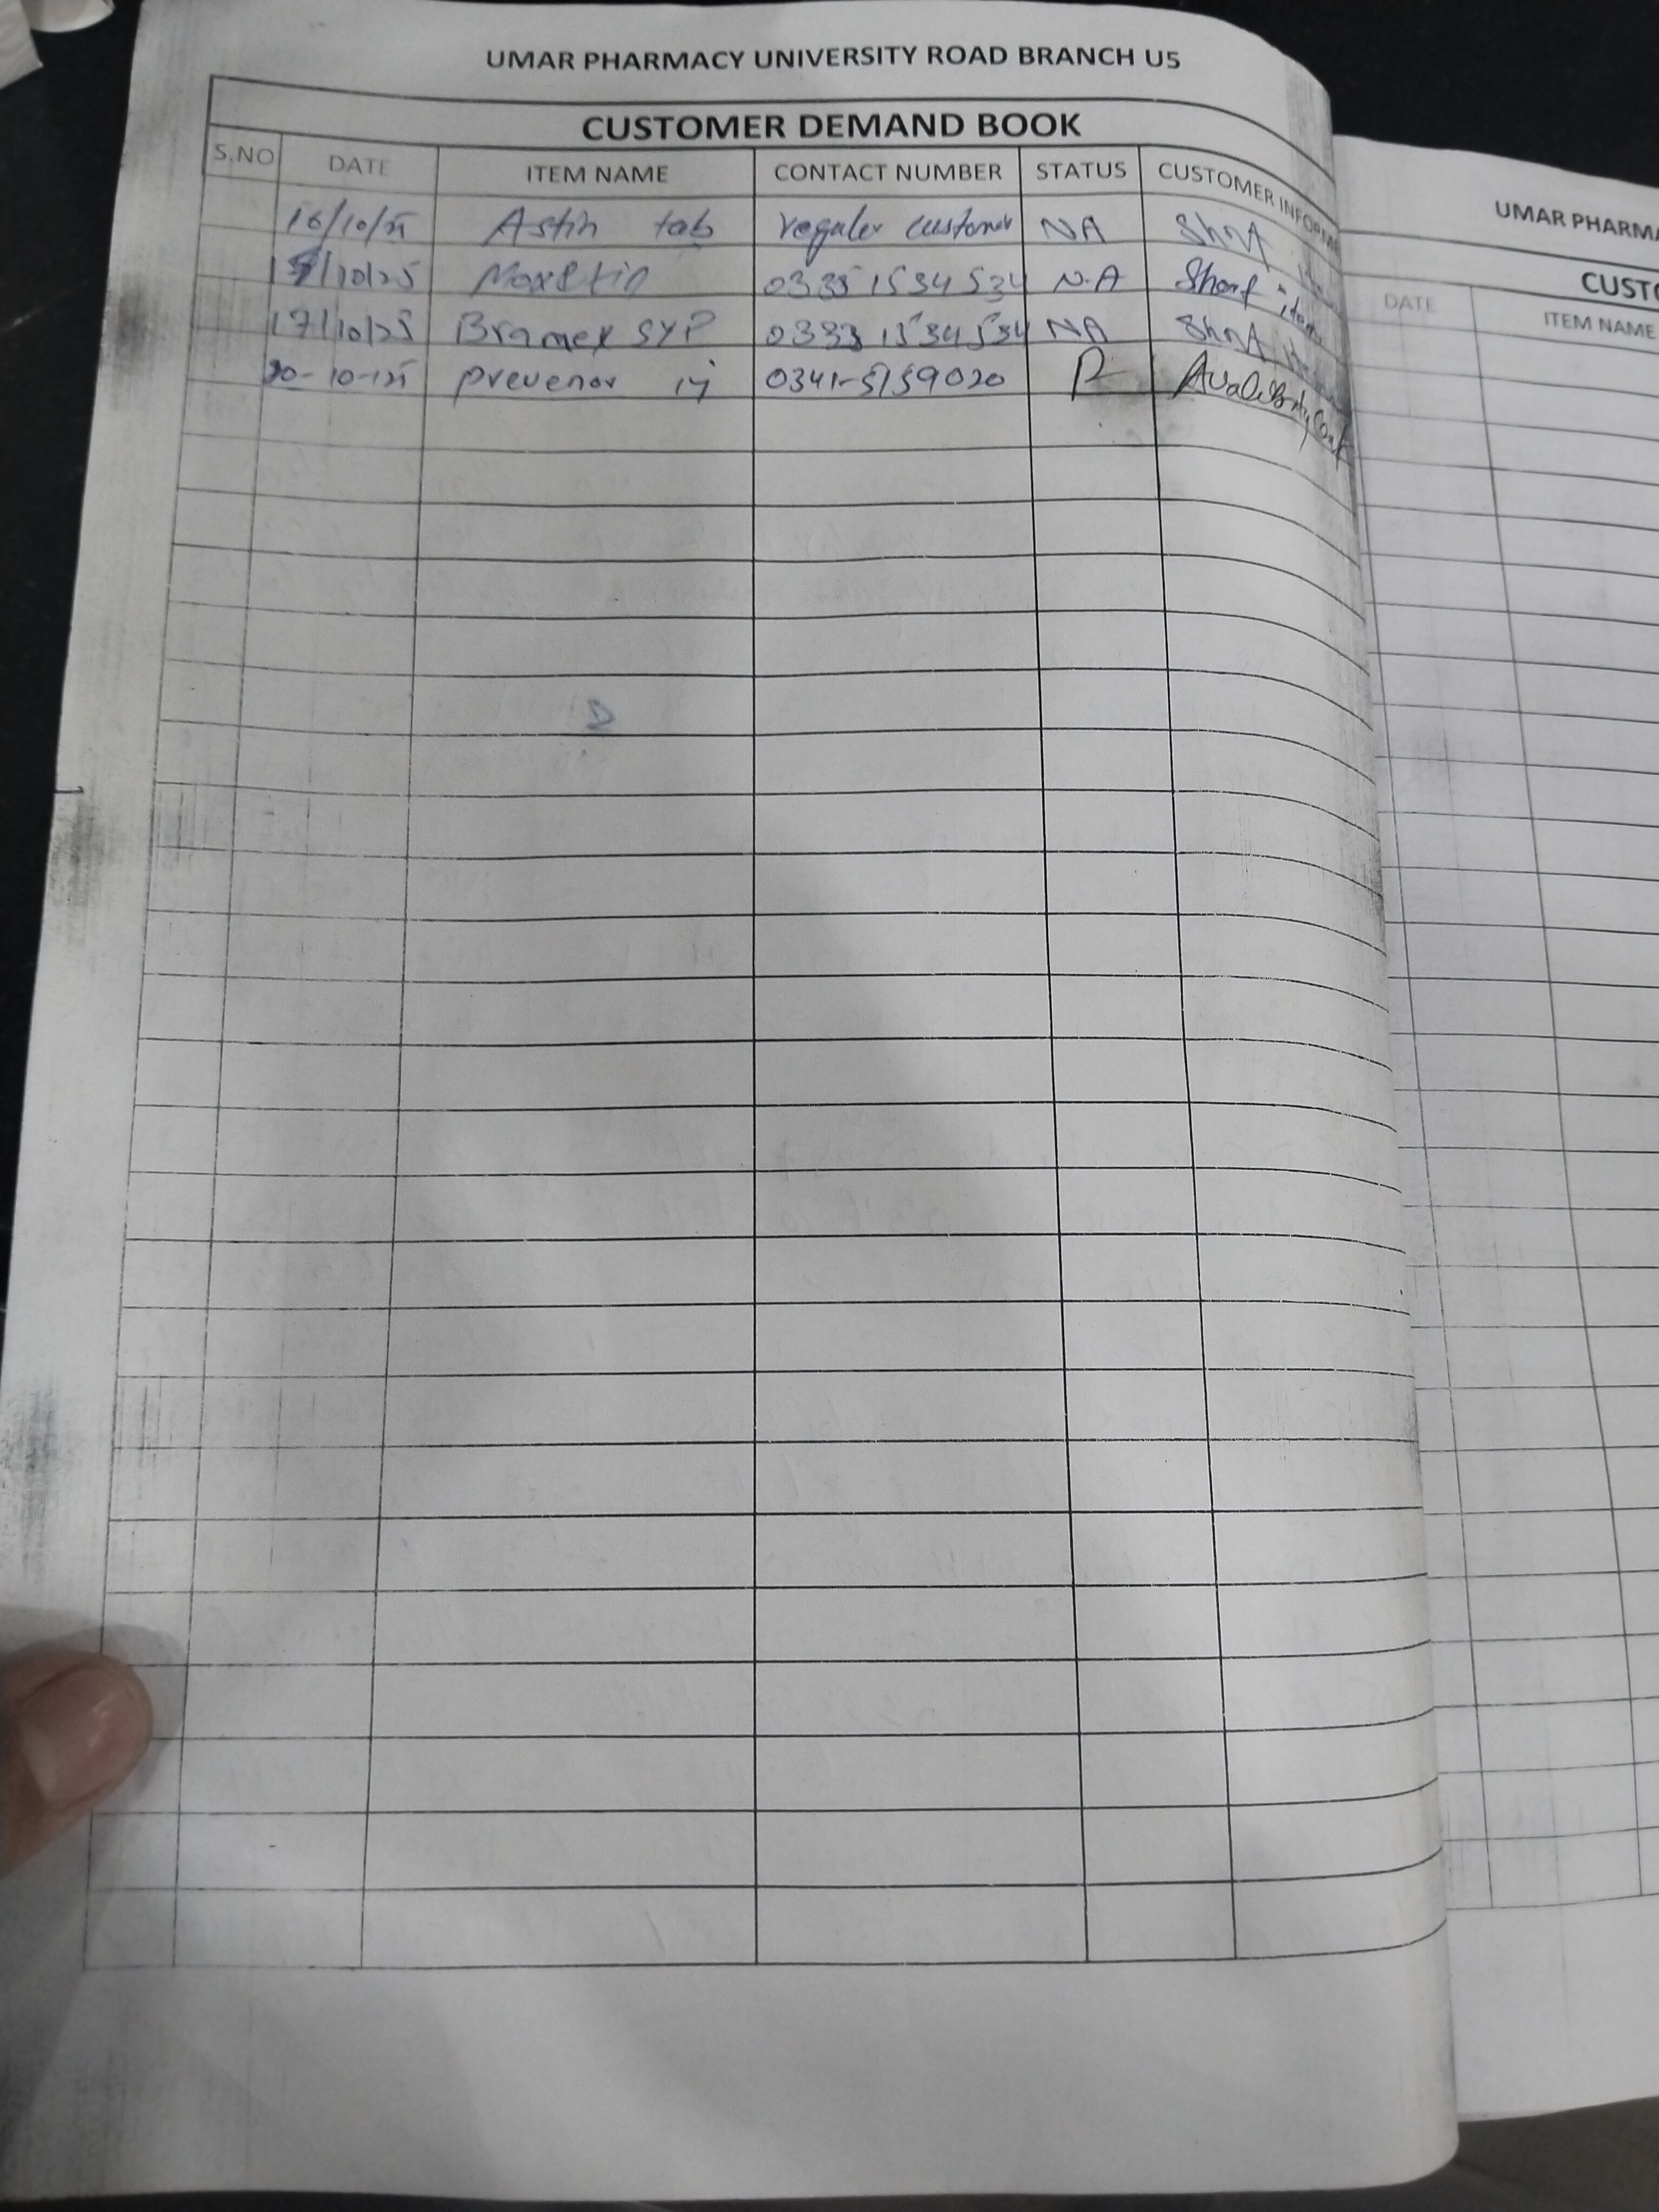 UMAR PHARMACY UNIVERSITY ROAD BRANCH U5
CUSTOMER DEMAND BOOK
S.NO DATE ITEM NAME CONTACT NUMBER STATUS CUSTOMER INFORM
16/10/25 Astin tab regular customer NA Short
/10/25 N.A Short item
17/10/25 Bramex SYP 0333 1534534 NA Short
20-10-25 prevenar inj 0341-5159020 R
UMAR PHARMA
CUSTO
DATE ITEM NAME